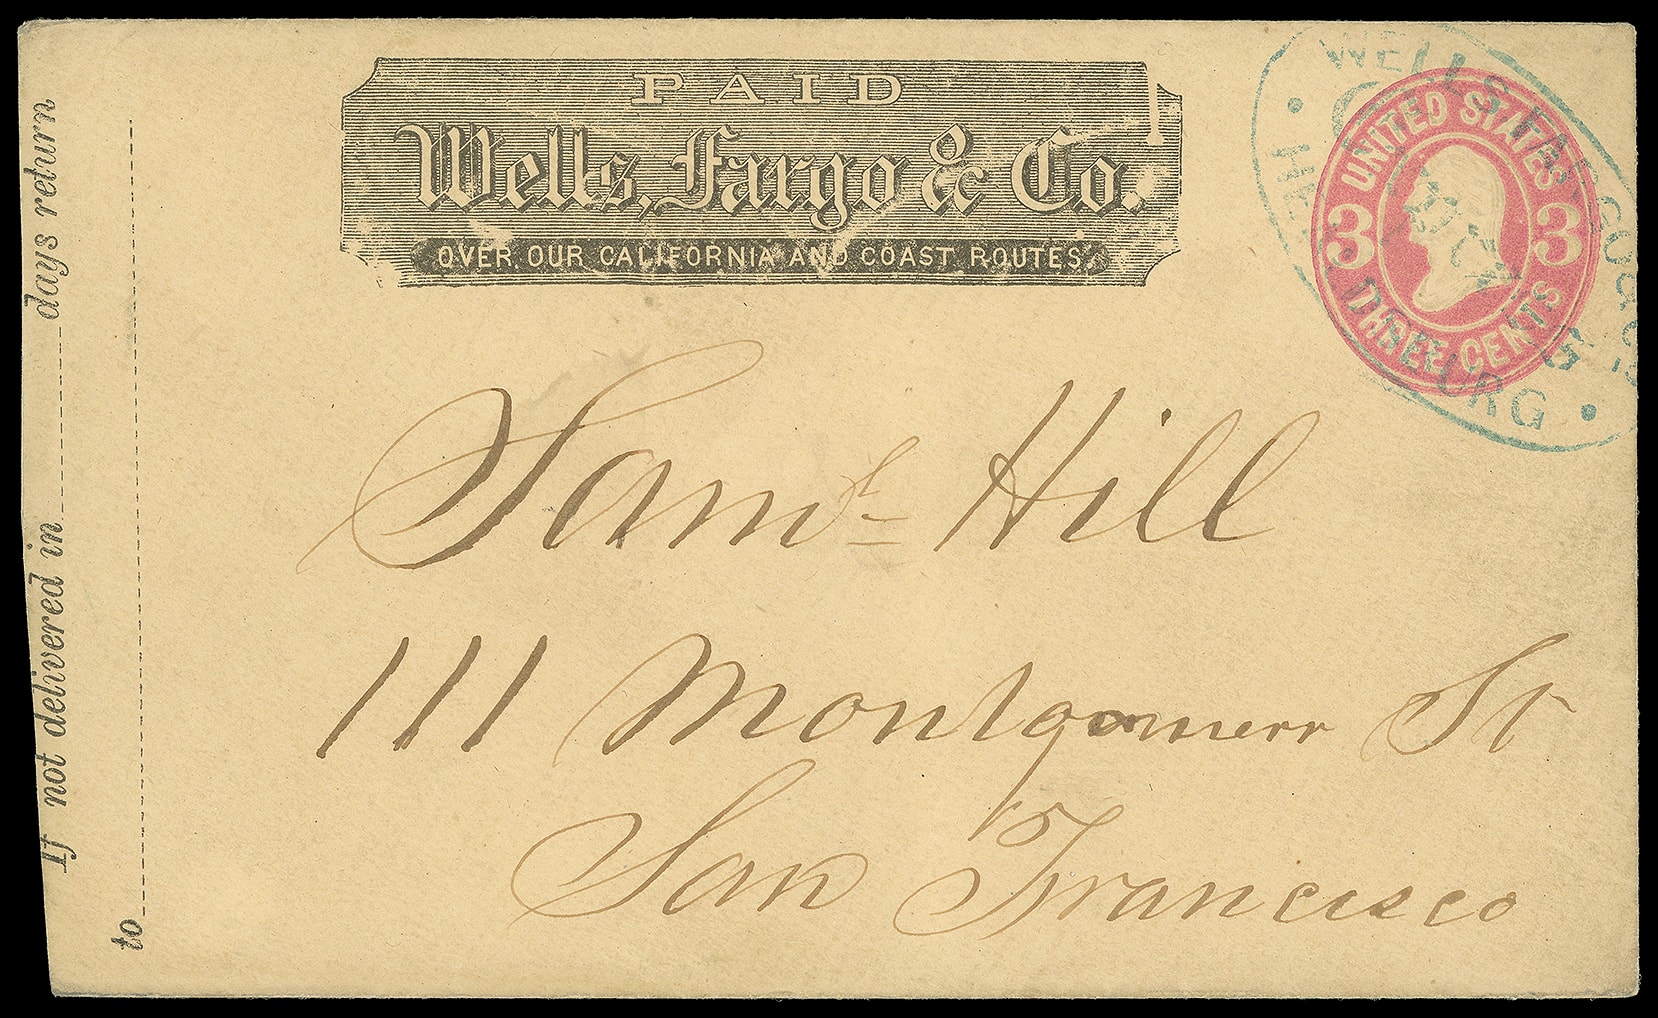 PAID
Wells, Fargo & Co.
OVER OUR CALIFORNIA AND COAST ROUTES.
UNITED STATES
3 3
THREE CENTS
WELLS FARGO & CO
HEALDSBURG
Saml Hill
111 Montgomerr St
San Francisco
If not delivered in days return
to